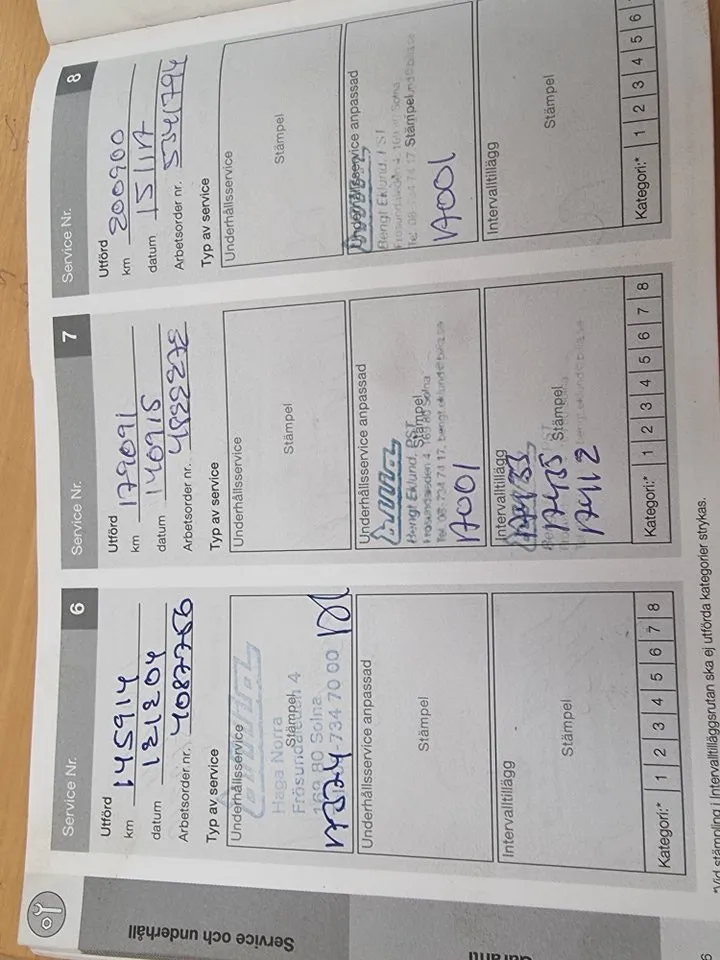 Service och underhåll
Service Nr. 6
Utförd
km 145914
datum 121204
Arbetsorder nr. 4087756
Typ av service
Underhållsservice
Haga Norra
Stämpel
Frösundaleden 4
169 80 Solna
-734 70 00
Underhållsservice anpassad
Stämpel
Intervalltillägg
Stämpel
Kategori:* 1 2 3 4 5 6 7 8
Service Nr. 7
Utförd
km 179091
datum 140915
Arbetsorder nr.
Typ av service
Underhållsservice
Stämpel
Underhållsservice anpassad
Bengt Eklund, PST
Stämpel
Frösundaleden 4, 169 80 Solna
Tel 08-734 74 17, bengt.eklund@bilia.se
17001
Intervalltillägg
Stämpel
17455
17412
Kategori:* 1 2 3 4 5 6 7 8
Service Nr. 8
Utförd
km 200900
datum
Arbetsorder nr. 5341794
Typ av service
Underhållsservice
Stämpel
Underhållsservice anpassad
Bengt Eklund, PST
Frösundaleden 4, 169 80 Solna
Tel 08-734 74 17
Stämpel
17001
Intervalltillägg
Stämpel
Kategori:* 1 2 3 4 5 6
*Vid stämpling i Intervalltilläggsrutan ska ej utförda kategorier strykas.